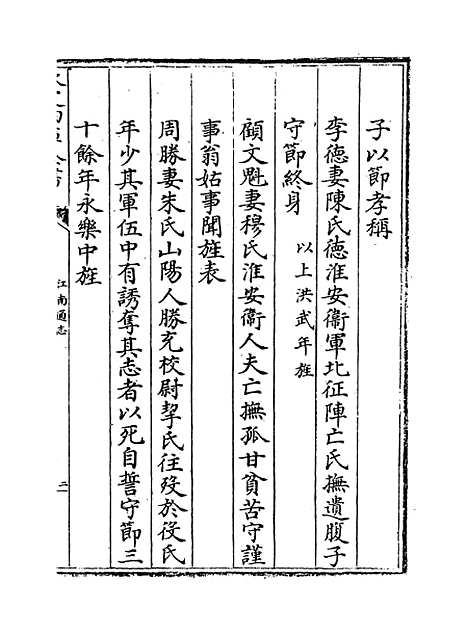 子以節孝稱
李德妻陳氏德淮安衞軍北征陣亡氏撫遺腹子
守節終身 以上洪武年旌
顧文魁妻穆氏淮安衞人夫亡撫孤甘貧苦守謹
事翁姑事聞旌表
周勝妻朱氏山陽人勝充校尉挈氏往歿於役氏
年少其軍伍中有誘奪其志者以死自誓守節三
十餘年永樂中旌
江南通志
二